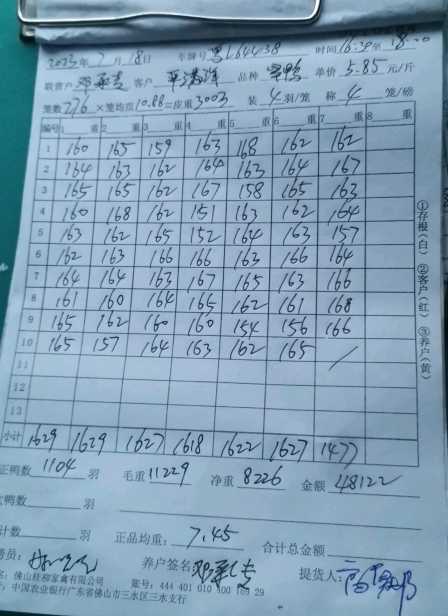 2023年7月18日 车牌号 粤L64438 时间 16:30至18:00
联营户 邓 客户 品种 鸭 单价 5.85 元/斤
笼数 276 ×笼均重 10.88=皮重 3003 装 4 羽/笼 称 4 笼/磅
编号 1 重 2 重 3 重 4 重 5 重 6 重 7 重 8 重
1 160 165 159 163 168 162 162
2 164 163 162 164 163 164 167
3 165 165 162 167 158 165 163
4 160 168 162 151 163 162 164
5 163 162 165 152 164 163 157
6 162 163 166 166 163 166 164
7 164 164 163 167 165 163 166
8 161 160 164 165 162 161 168
9 165 162 160 160 154 156 166
10 165 157 164 163 162 165 /
11
12
13
小计 1629 1629 1627 1618 1622 1627 1477
①存根(白) ②客户(红) ③养户(黄)
正鸭数 1104 羽 毛重 11229 净重 8226 金额 48122
鸭数 羽
计数 羽 正品均重: 7.45 合计总金额
务员: 养户签名: 邓 提货人:
名: 佛山桂柳家禽有限公司 账号: 444 401 010 400 169 29
: 中国农业银行广东省佛山市三水区三水支行